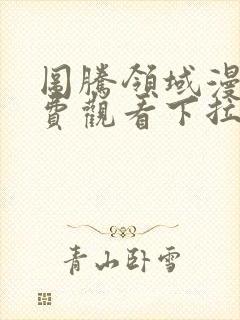 圖騰領域漫
費觀看下拉
青山卧雪